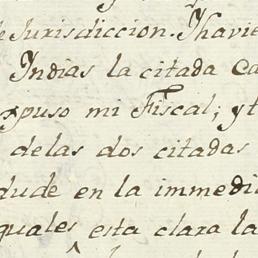 Jurisdiccion. Y havie
Indias la citada Ca
xpuso mi Fiscal; y t
delas dos citadas
dude en la immedi
quales esta clara la